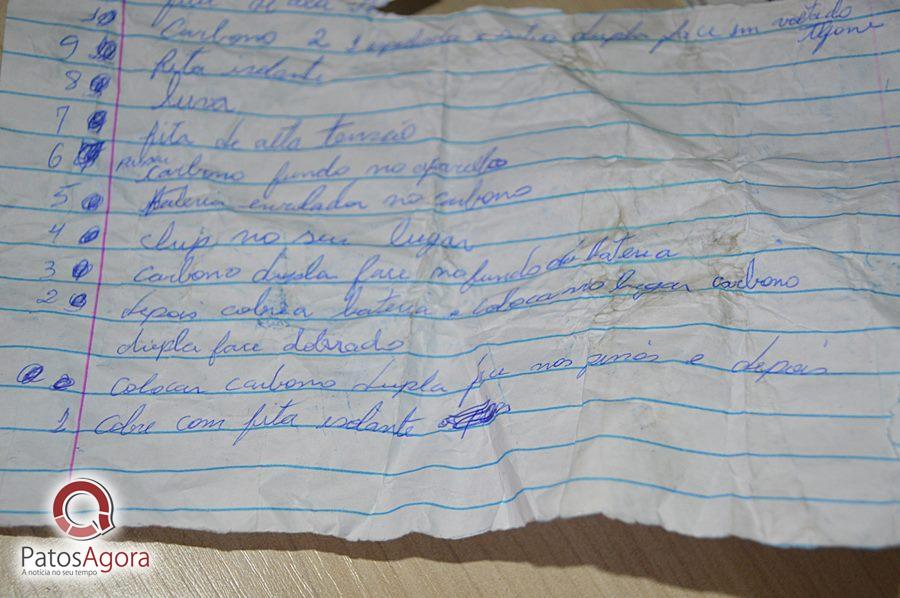 10 fita de
Carbono 2 dupla face em
9 fita isolante
8 luva
7 fita de alta tensão
6 carbono fundo no aparelho
5 Bateria enrolada no carbono
4 chip no seu lugar
3 carbono dupla face no fundo da Bateria
2 depois cobre a bateria e coloca no lugar carbono
dupla face dobrado
colocar carbono dupla face nos e depois
1 cobre com fita isolante
PatosAgora
A notícia no seu tempo